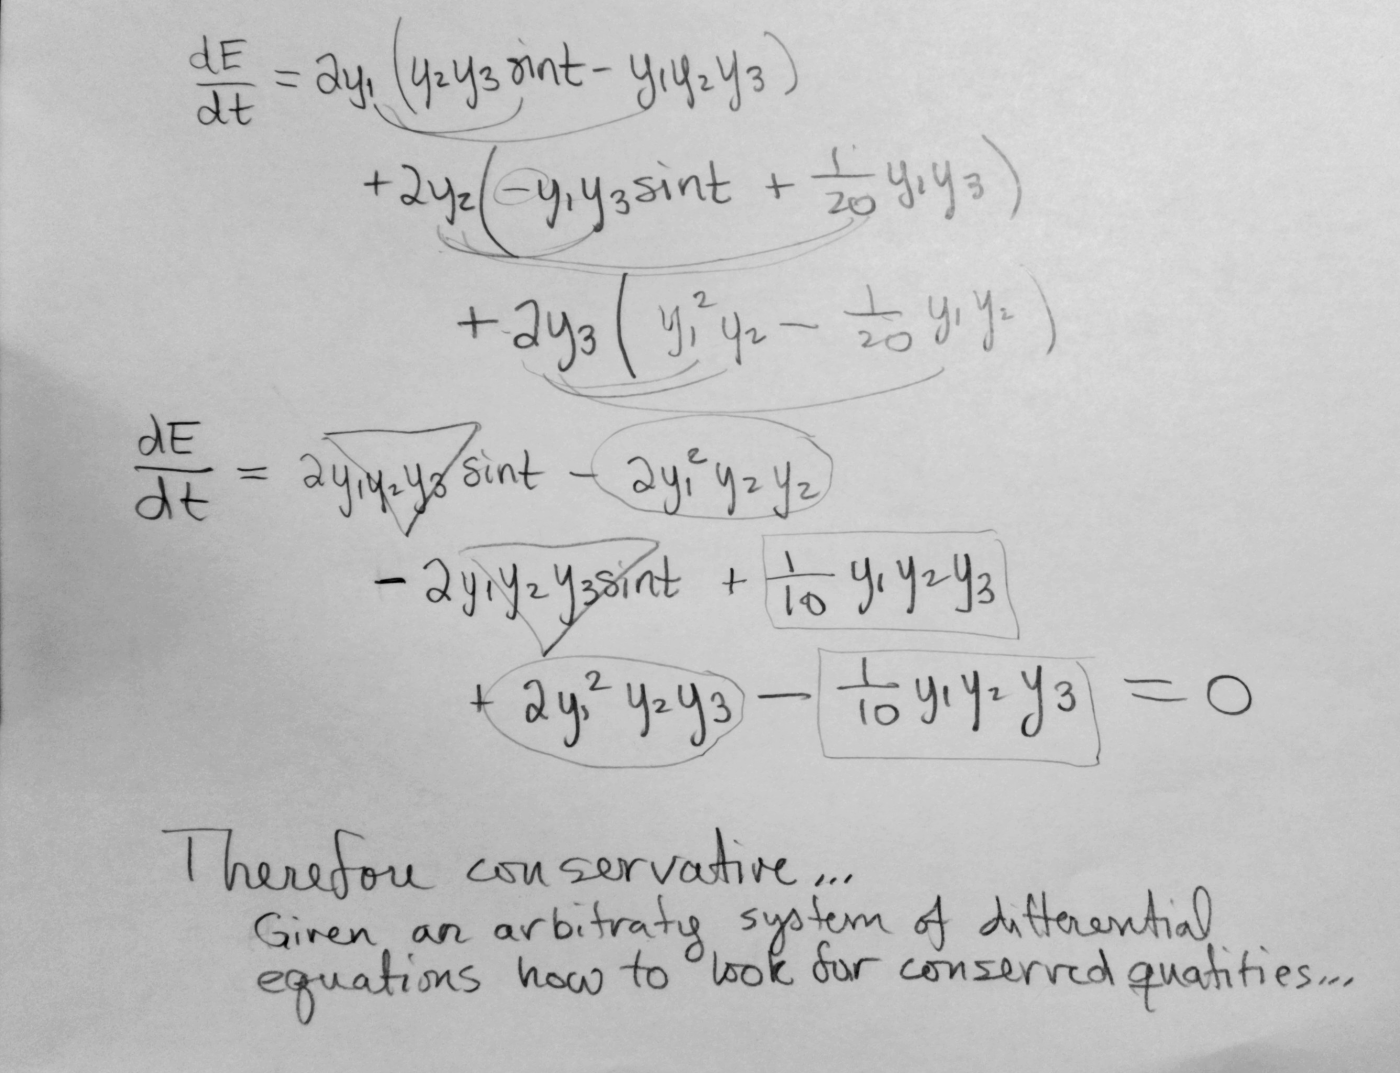 dE/dt = 2y₁(y₂y₃ sint - y₁y₂y₃)
+2y₂(-y₁y₃sint + 1/20 y₁y₃)
+2y₃(y₁²y₂ - 1/20 y₁y₂)
dE/dt = 2y₁y₂y₃ sint - 2y₁²y₂y₂
- 2y₁y₂y₃sint + 1/10 y₁y₂y₃
+ 2y₁²y₂y₃ - 1/10 y₁y₂y₃ = 0
Therefore conservative...
Given an arbitraty system of differential
equations how to look for conserved quatities...